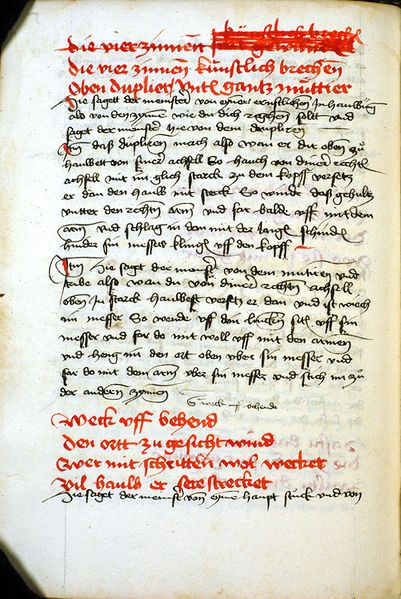 die vier zinnen
die vier zinnen kunstlich brechen
Oben dupliers Vntten gantz muttier
Hie sagett der meinster von einer ernstlichen Inhauwung
als von den zinnen wie du dich rechen salt vnd
saget der meinster hie von dem dupliren
Item das dupliren mach also wan er dir oben zu
hauwett von siner achseln So hauch von diner rechten
achseln mit im glich starck zu dem kopff versetz
er dan den hauw mit sterck So winde das gehultz
vntter den rechten arm vnd far balde vff mit dem
arm vnd schlag in dan mit der langen schniden
hinder sin messer klingen vff den kopff
Item Hie sagt der meinster von dem mutiren vnd
tribe also wan du von diner rechten achseln
oben In starck hauwest versetz er dan vnd ist weich
im messer So wende vff din lincken sitten vff sin
messer vnd far do mit woll vff mit den armen
vnd heng im den ort oben vber sin messer vnd
far do mit dem arm vber sin messer vnd stich im zu
der anderen zynnen
weck vff behende
Weck vff behend
den ortt zu gesicht wind
wer mit schritten wol wecket
vil hauw er sere strecket
Hie saget der meinster von eyme haupt stuck vnd von